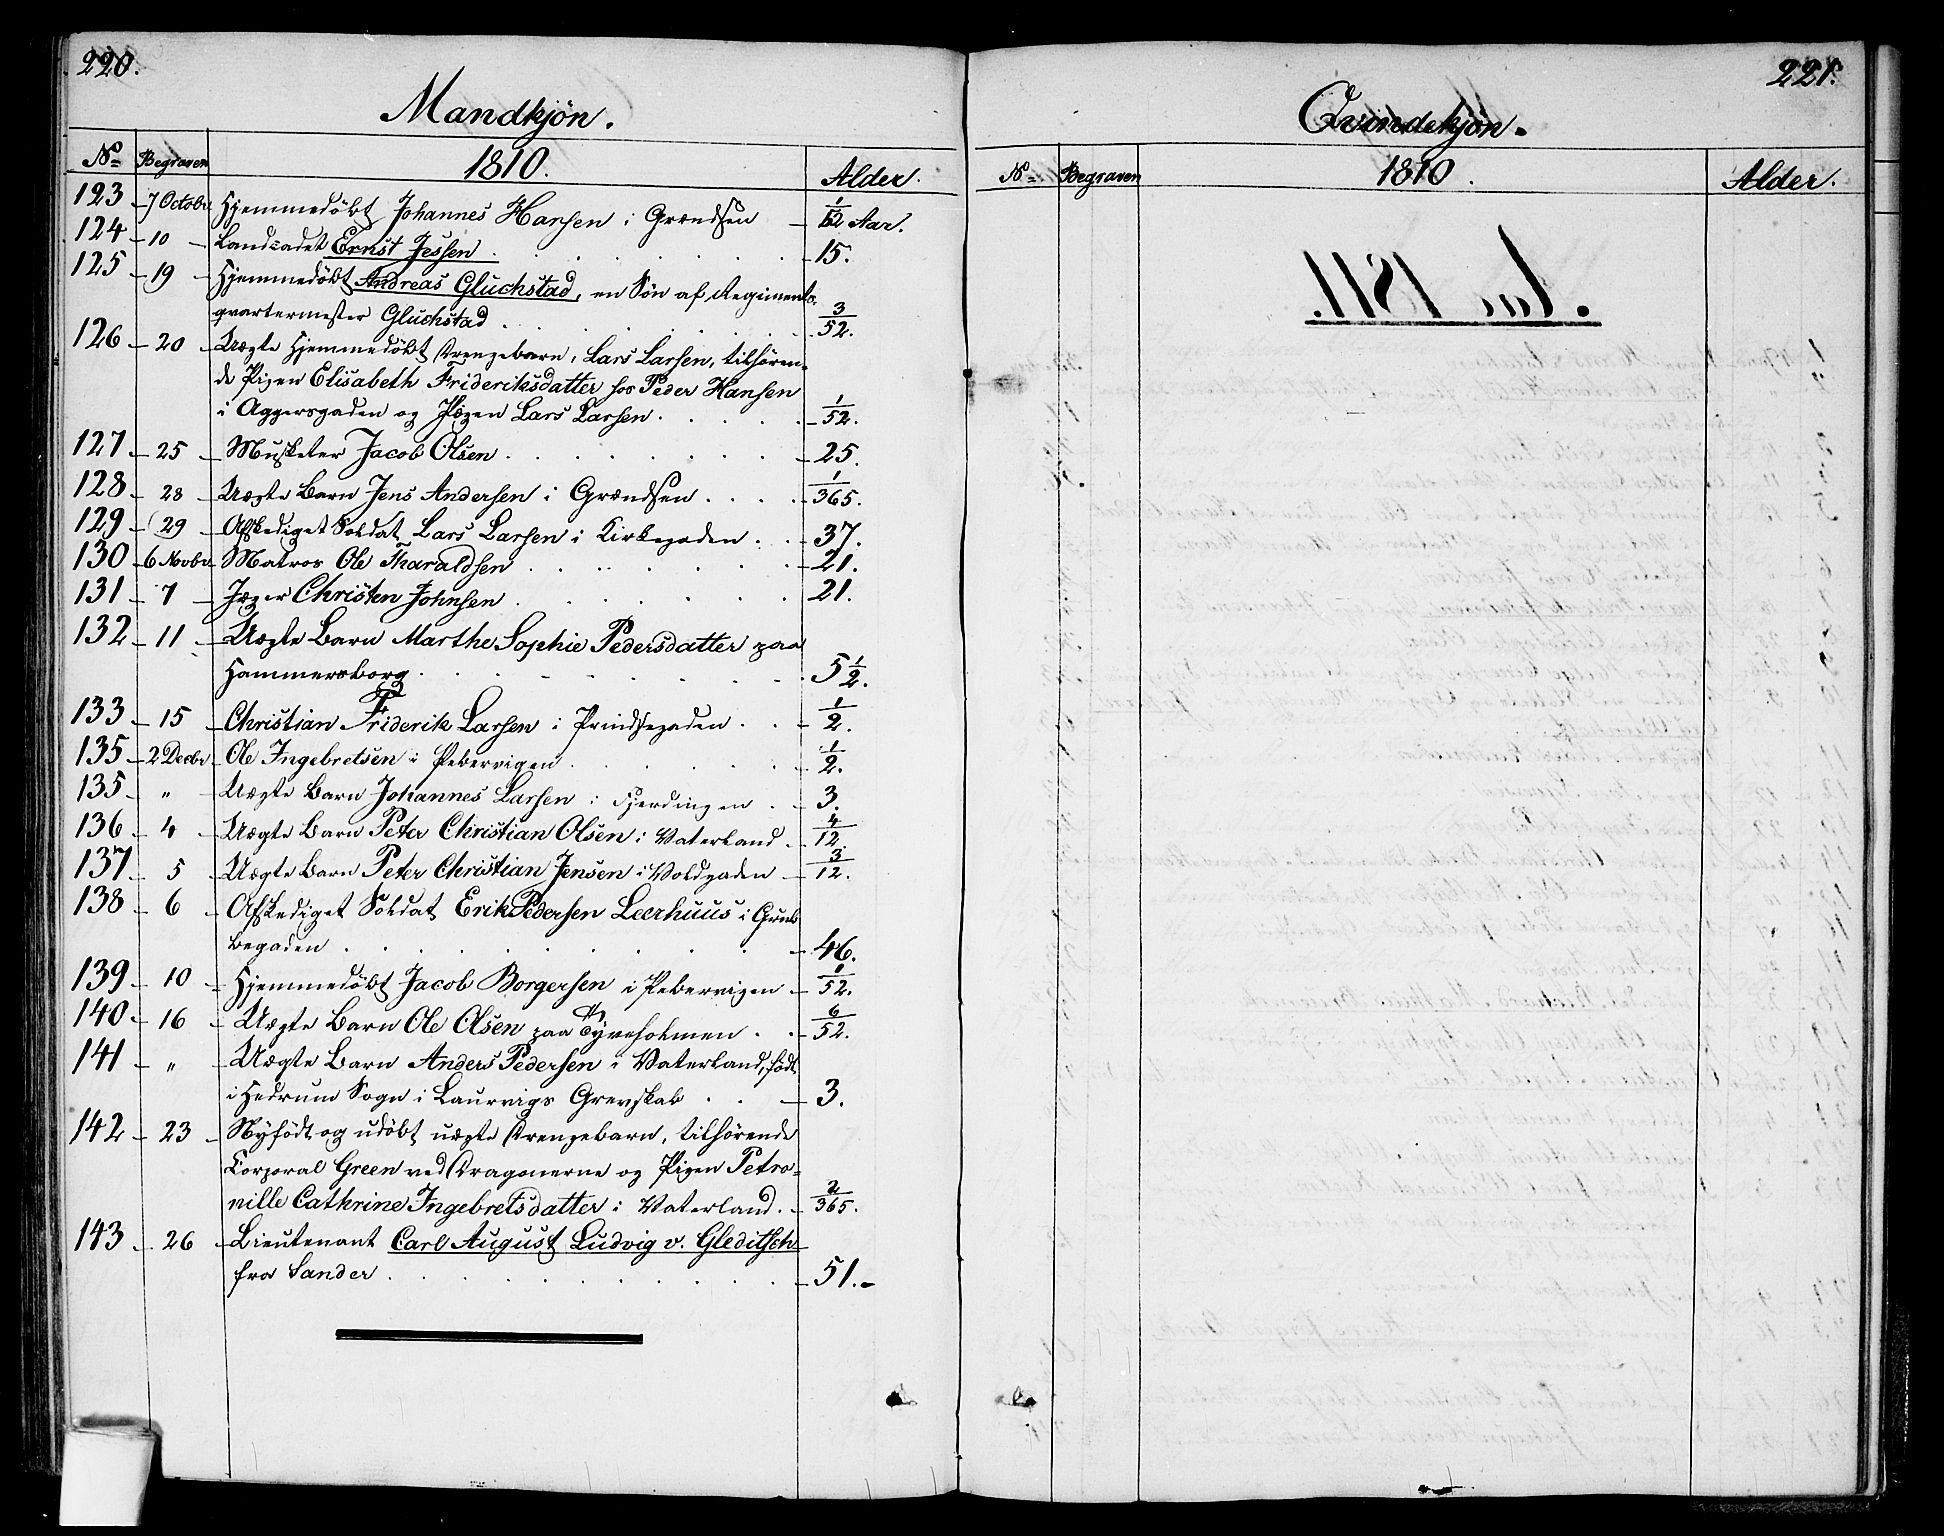 220.
Mandkjön.
Nº Begraven 1810. Alder.
123 7 Octobr Hjemmedöbt Johannes Hansen i Grændsen 1/12 Aar.
124 10 Landcadet Ernst Jessen 15.
125 19 Hjemmedöbt Andreas Gluckstad, en Sön af Regiments-
qvartermester Gluckstad 3/52.
126 20 Uægte Hjemmedöbt Drengebarn, Lars Larsen, tilhören-
de Pigen Elisabeth Frideriksdatter hos Peder Hansen
i Aggersgaden og Lars Larsen. 1/52.
127 25 Musketer Jacob Olsen 25.
128 28 Uægte Barn Jens Andersen i Grændsen 1/365.
129 29 Afskediget Soldat Lars Larsen i Kirkegaden 37.
130 6 Novbr Matros Ole Tharaldsen 21.
131 7 Jæger Christen Johnsen 21.
132 11 Uægte Barn Marthe Sophie Pedersdatter paa
Hammersborg 5 1/2.
133 15 Christian Friderik Larsen i Prindsegaden 1/2.
135 2 Decbr Ole Ingebretsen i Pebervigen 1/2.
135 " Uægte Barn Johannes Larsen i Fjerdingen 3.
136 4 Uægte Barn Peter Christian Olsen i Vaterland 4/12
137 5 Uægte Barn Peter Christian Jensen i Voldgaden 3/12.
138 6 Afskediget Soldat Erik Pedersen Leerhuus i Grub-
begaden 46.
139 10 Hjemmedöbt Jacob Borgersen i Pebervigen 1/52.
140 16 Uægte Barn Ole Olsen paa Tyveholmen 6/52.
141 " Uægte Barn Anders Pedersen i Vaterland, födt
i Hedrum Sogn i Laurvigs Grevskab 3.
142 23 Nyfödt og udöbt uægte Drengebarn, tilhörende
Corporal Green ved Dragonerne og Pigen Petro-
nille Cathrine Ingebretsdatter i Vaterland. 2/365.
143 26 Lieutenant Carl August Ludvig v. Gleditsch
fra Sander 51.
221.
Qvindekjön.
Nº Begraven 1810. Alder.